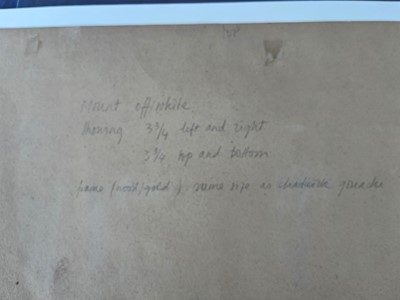 Mount off/white
showing 3 3/4 left and right
3 3/4 top and bottom
frame (wood/gold) same size as gouache